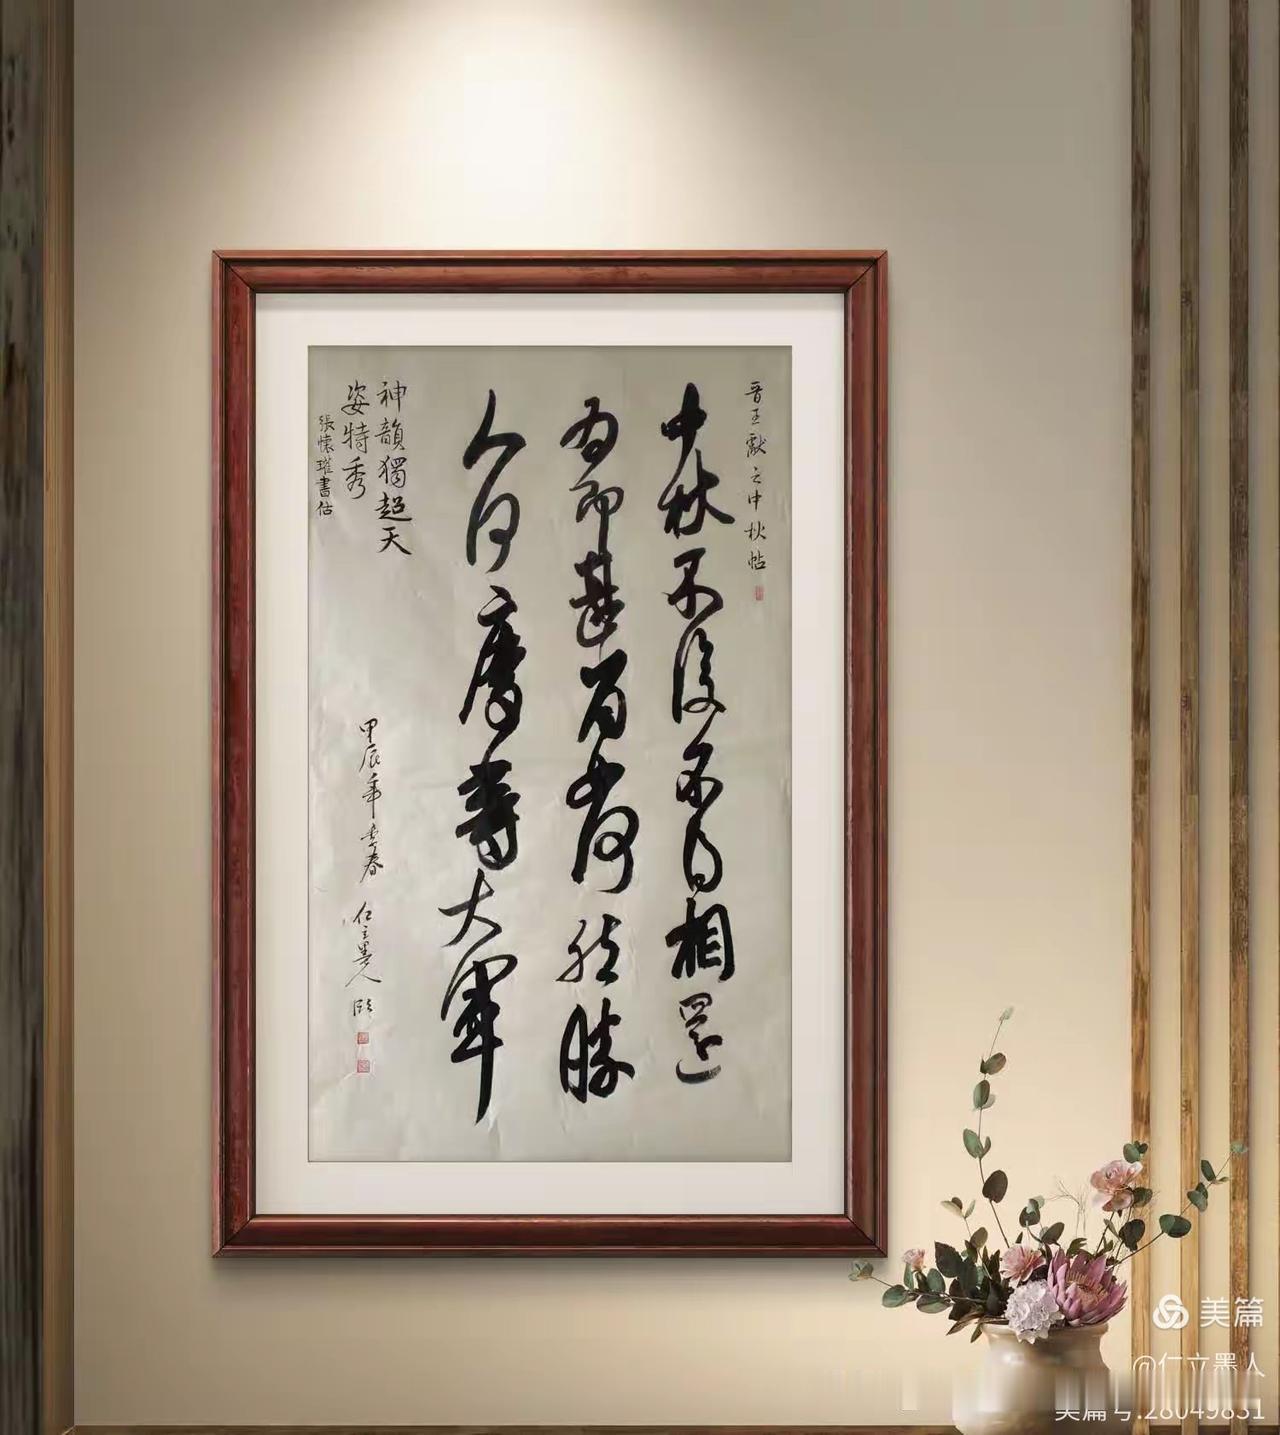 晋王献之中秋帖
中秋不復不得相還
為即甚省如何然勝
人何慶等大軍
神韻獨超天
姿特秀
張懷瓘書估
甲辰年季春 仁立墨人 臨
美篇
@仁立墨人
美篇号:28049831